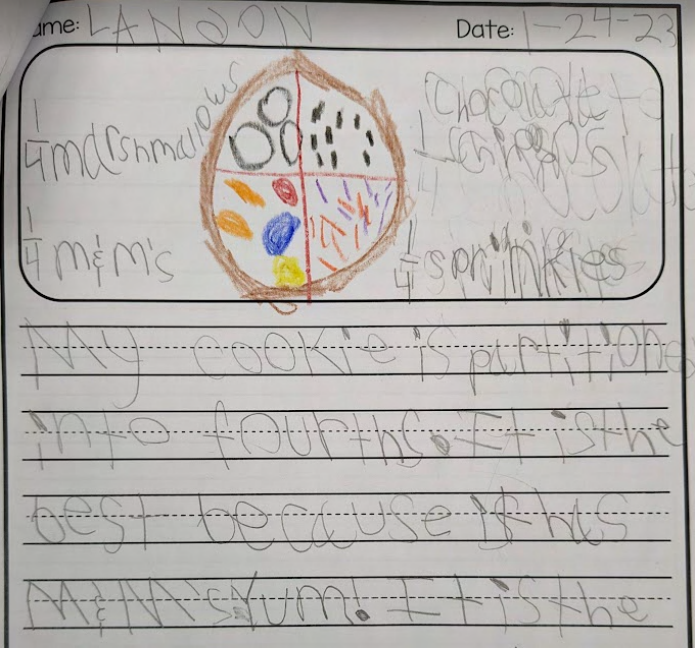 ame: LANDON Date: 1-24-23
1/4 marshmallows
chocolate
1/4 chips
1/4 M&M's
1/4 sprinkles
My cookie is partitione
into fourths. It is the
best because it has
M&M's Yum! It is the